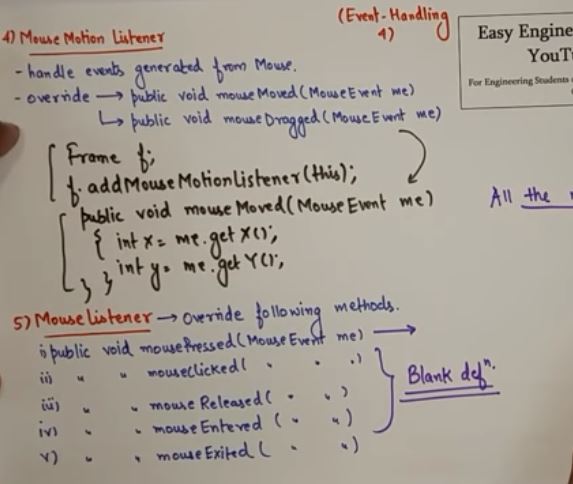 (Event-Handling
4)
Easy Engine
YouT
For Engineering Students
4) Mouse Motion Listener
- handle events generated from Mouse.
- override → public void mouseMoved(MouseEvent me)
↳ public void mouseDragged(MouseEvent me)
Frame f;
f.addMouseMotionListener(this);
public void mouseMoved(MouseEvent me)
{ int x = me.getX();
int y = me.getY();
} }
All the
5) Mouselistener → Override following methods.
i) public void mousePressed(MouseEvent me) →
ii) " " mouseClicked( " " )
iii) " " mouseReleased( " " )
iv) " " mouseEntered ( " " )
v) " " mouseExited ( " " )
Blank defⁿ.